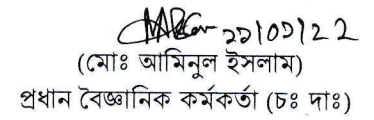 ২১/০১/২২
(মোঃ আমিনুল ইসলাম)
প্রধান বৈজ্ঞানিক কর্মকর্তা (চঃ দাঃ)